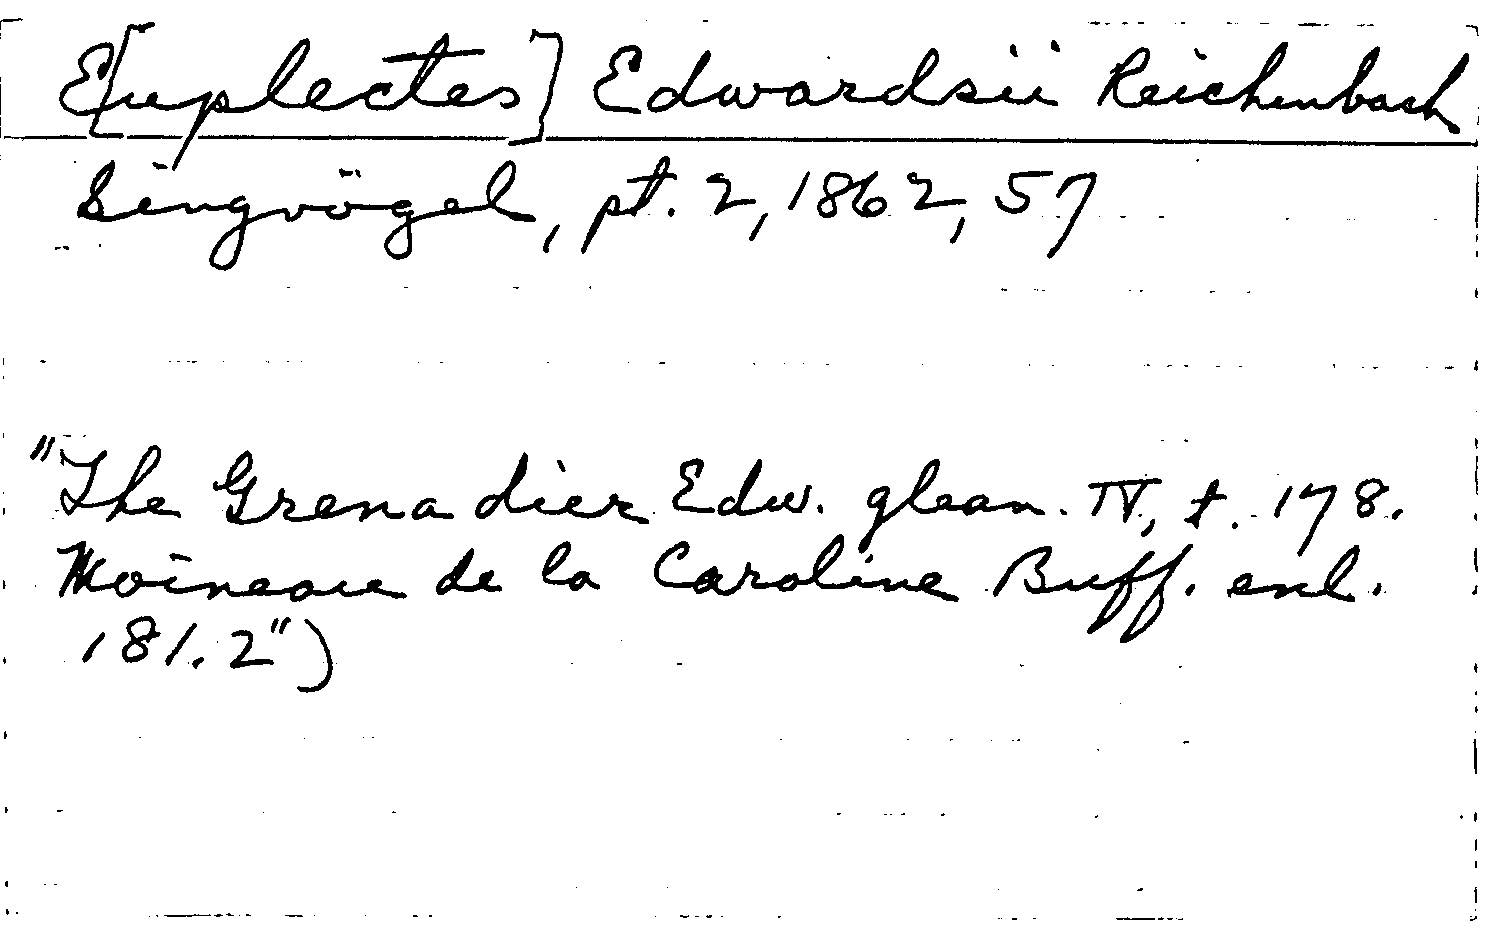 E[uplectes] Edwardsii Reichenbach
Singvögel, pt. 2, 1862, 57
"The Grenadier Edw. glean. IV, t. 178.
Moineau de la Caroline Buff. enl.
181.2")